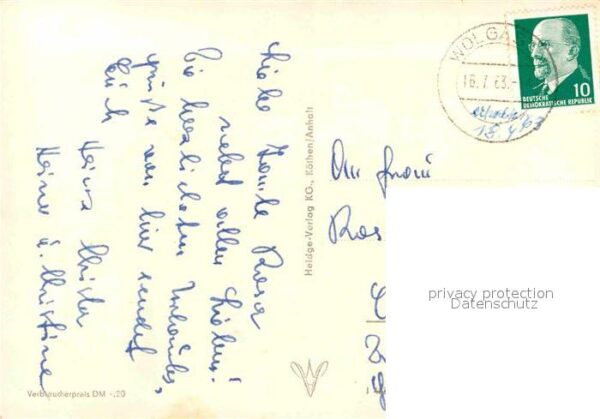 Liebe Tante Rosa
nebst allen Lieben!
Die herzlichsten Urlaubs,
grüße von hier sendet
Euch
Heinz u. Christine
WOLGAST
16.7.63.-
DEUTSCHE
DEMOKRATISCHE REPUBLIK
10
15.7.63
Heldge-Verlag KG., Köthen/Anhalt
An Frau
Ros
privacy protection
Datenschutz
Verbraucherpreis DM -,20